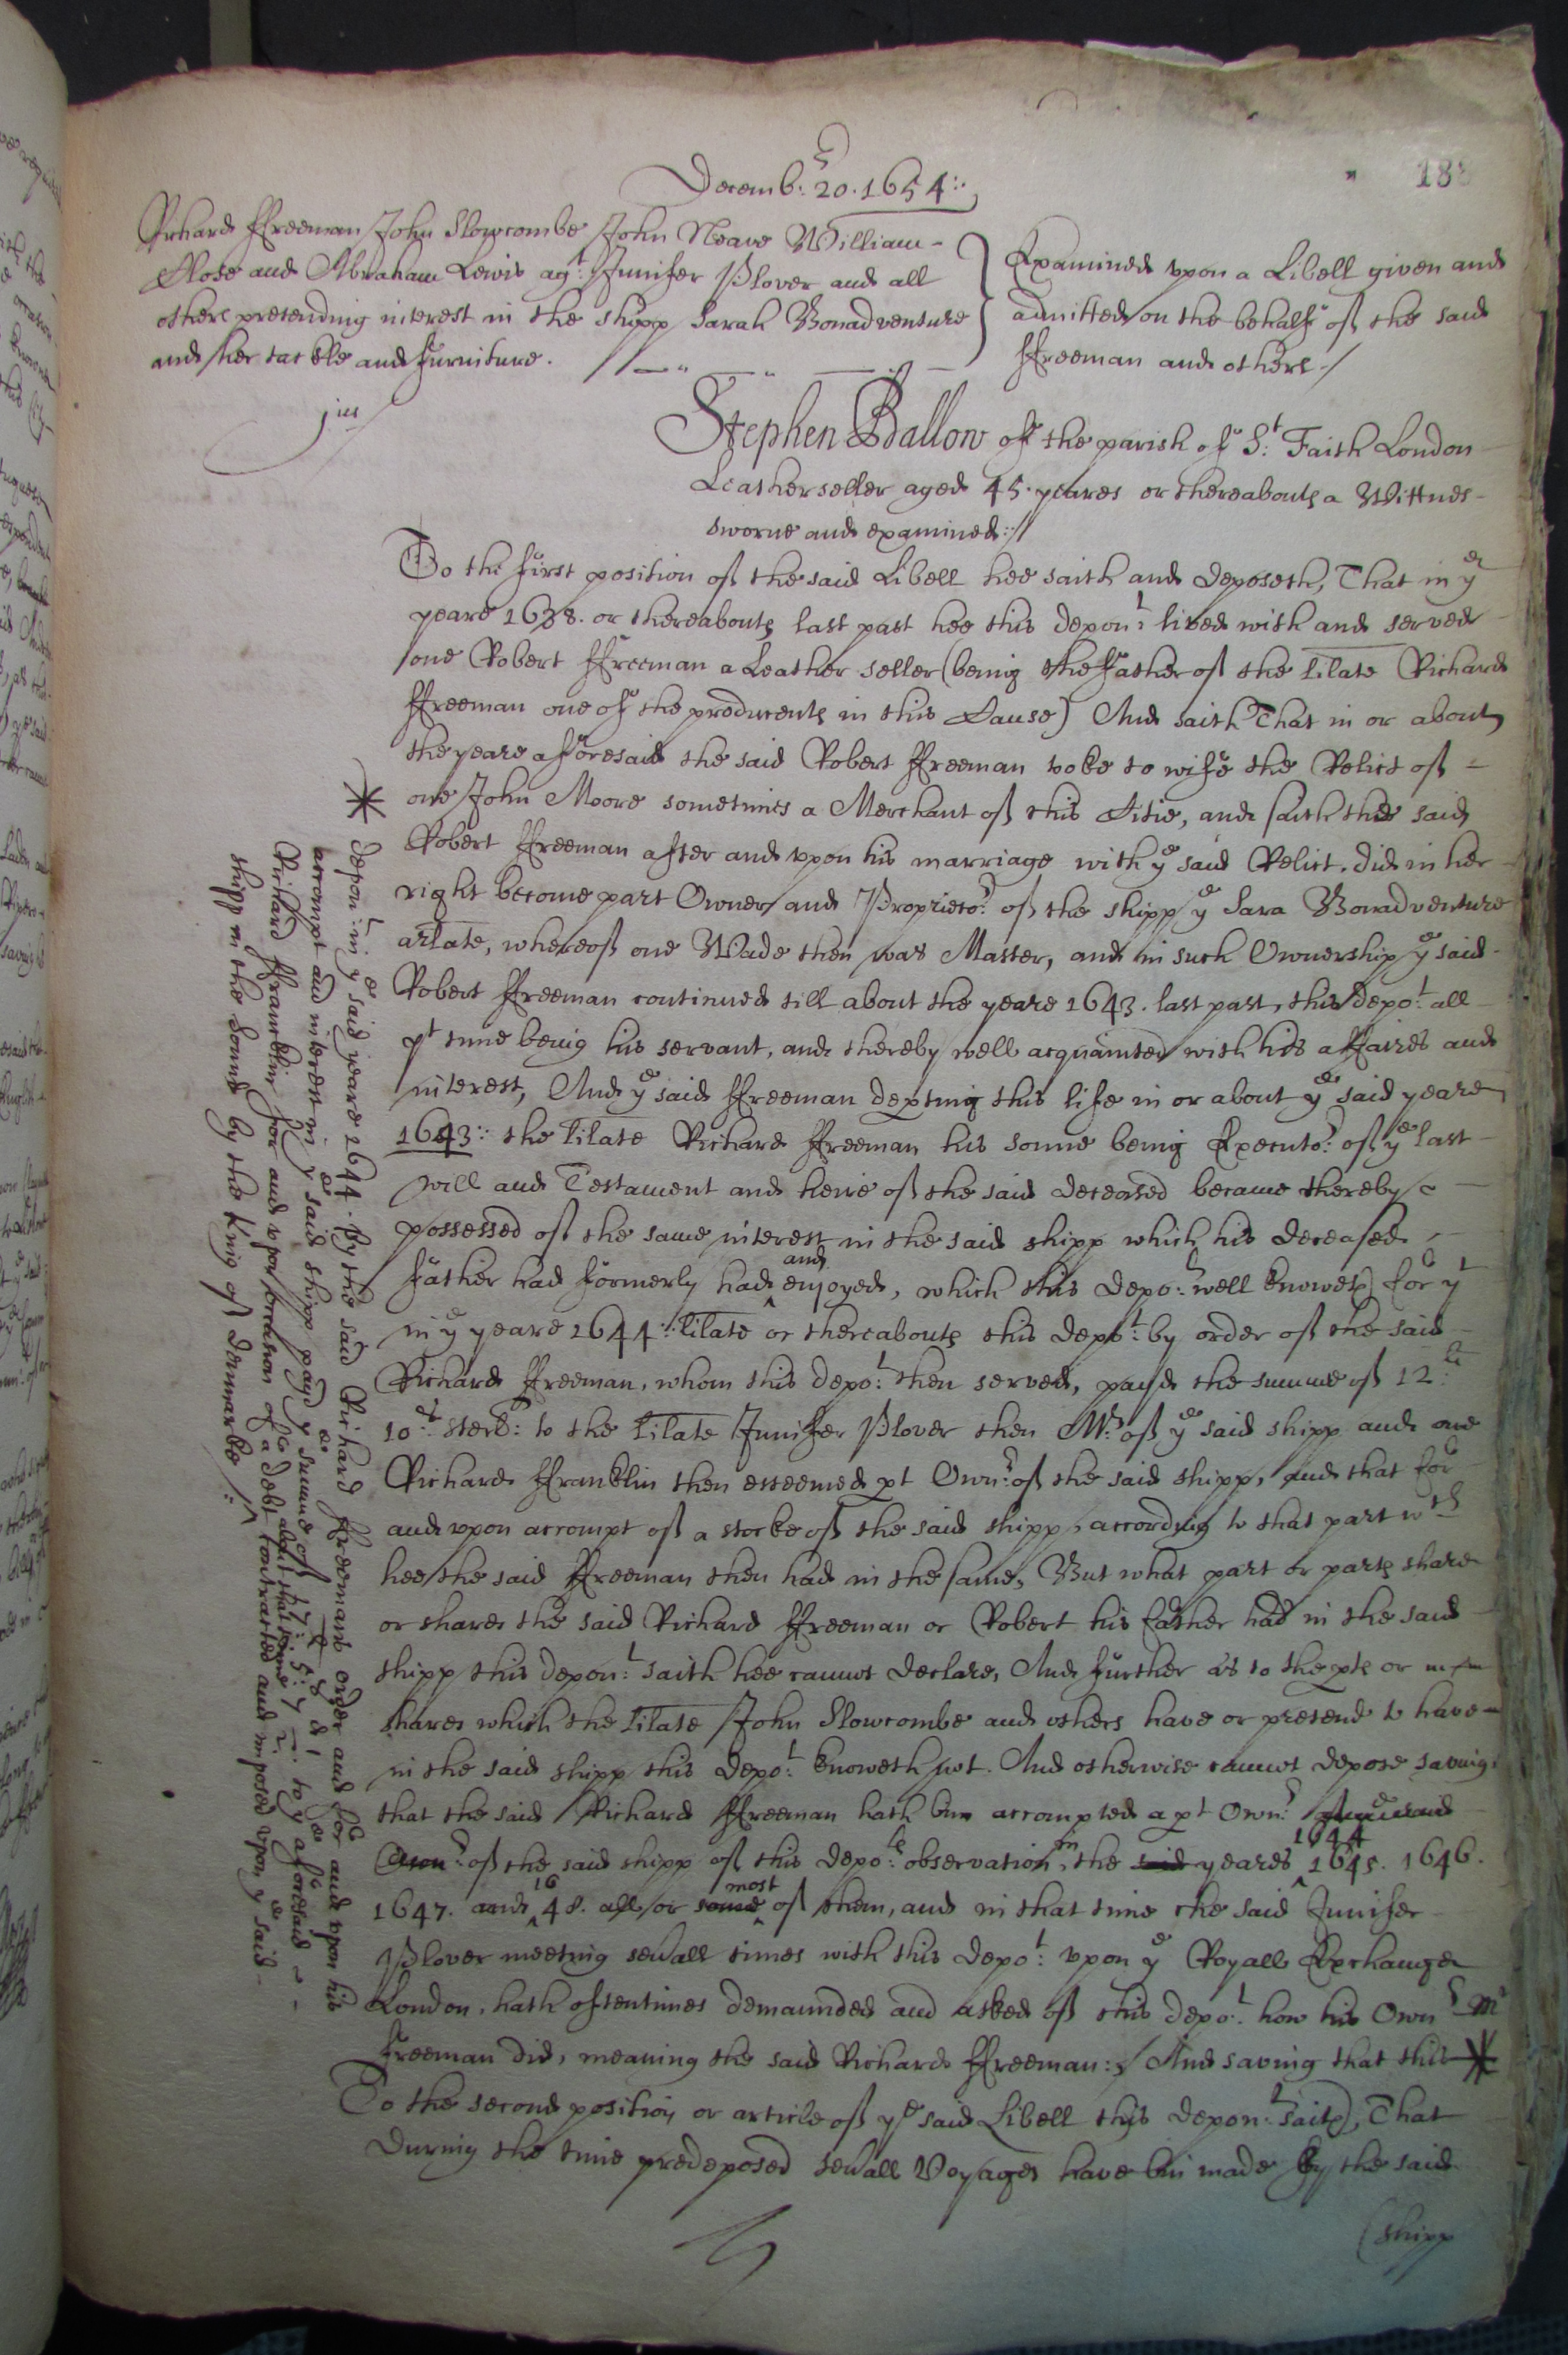 188
Decemb: 20. 1654:.
Richard Ffreeman John Slowcombe John Neave William
Close and Abraham Lewis agt: Junifer Plover and all
others pretending interest in the shipp Sarah Bonadventure
and her tackle and furniture.
Examined upon a Libell given and
admitted on the behalfe of the said
Ffreeman and others./
jus
Stephen Ballow of the parish of St: Faith London
Leatherseller aged 45. yeares or thereabouts a Wittnes
sworne and examined://
To the first position of the said Libell hee saith and deposeth, That in ye
yeare 1638. or thereabouts last past hee this depont: lived with and served
one Robert Ffreeman a Leather seller (being the father of the lilate Richard
Ffreeman one of the producents in this Cause) And saith That in or about
the yeare aforesaid the said Robert Ffreeman tooke to wife the Relict of
one John Moore sometimes a Merchant of this Citie, and saith the said
Robert Ffreeman after and upon his marriage with ye said Relict. did in her
right become part Owner and Proprietor: of the shipp ye Sara Bonadventure
arlate, whereof one Wade then was Master, and in such Ownership ye said
Robert Ffreeman continued till about the yeare 1643. last past, this depot: all
yt time being his servant, and thereby well acquainted with his affaires and
interest, And ye said Ffreeman depting this life in or about ye said yeare
1643:. the lilate Richard Ffreeman his sonne being Executor: of ye last
will and Testament and heire of the said deceased became thereby
possessed of the same interest in the said shipp which his deceased
father had formerly had and enjoyed, which this depot: well knoweth for yt
in ye yeare 1644:. lilate or thereabouts this depot: by order of the said
Richard Ffreeman, whom this depot: then served, payd the summe of 12li:
10s: sterl: to the lilate Junifer Plover then Mr: of ye said shipp and one
Richard Ffranklin then esteemed pt Ownr: of the said shipp, and that for
and upon accompt of a stocke of the said shipp, according to that part wch
hee the said Ffreeman then had in the same, But what part or parts share
or shares the said Richard Ffreeman or Robert his father had in the said
shipp this depont: saith hee cannot declare, And further as to the pts or
shares which the lilate John Slowcombe and others have or pretend to have
in the said shipp this depot: knoweth not. And otherwise cannot depose saving
that the said Richard Ffreeman hath bin accompted a pt Ownr:
Ownr: of the said shipp of this depots: observation in the said yeares 1644 1645. 1646.
1647. and 1648. all or some most of them, and in that time the said Junifer
Plover meeting sevall times with this depot: upon ye Royall Exchange
London, hath oftentimes demaunded and asked of this depot: how his Ownr Mr
Freeman did, meaning the said Richard Ffreeman:, And saving that this *
To the second position or article of ye said Libell this depont: saith, That
during the time predeposed sevall Voyages have bin made by the said
(shipp
* depont: in ye said yeare 1644. by the said Richard Ffreemans order and for and upon his
accompt and interest in ye said shipp payd ye summe of 17li: 5s: 7d to ye aforesaid
Richard Ffrancklin for and upon occasion of a debt about that time contracted and imposed upon ye said
shipp in the Sound by the King of denmarke/.